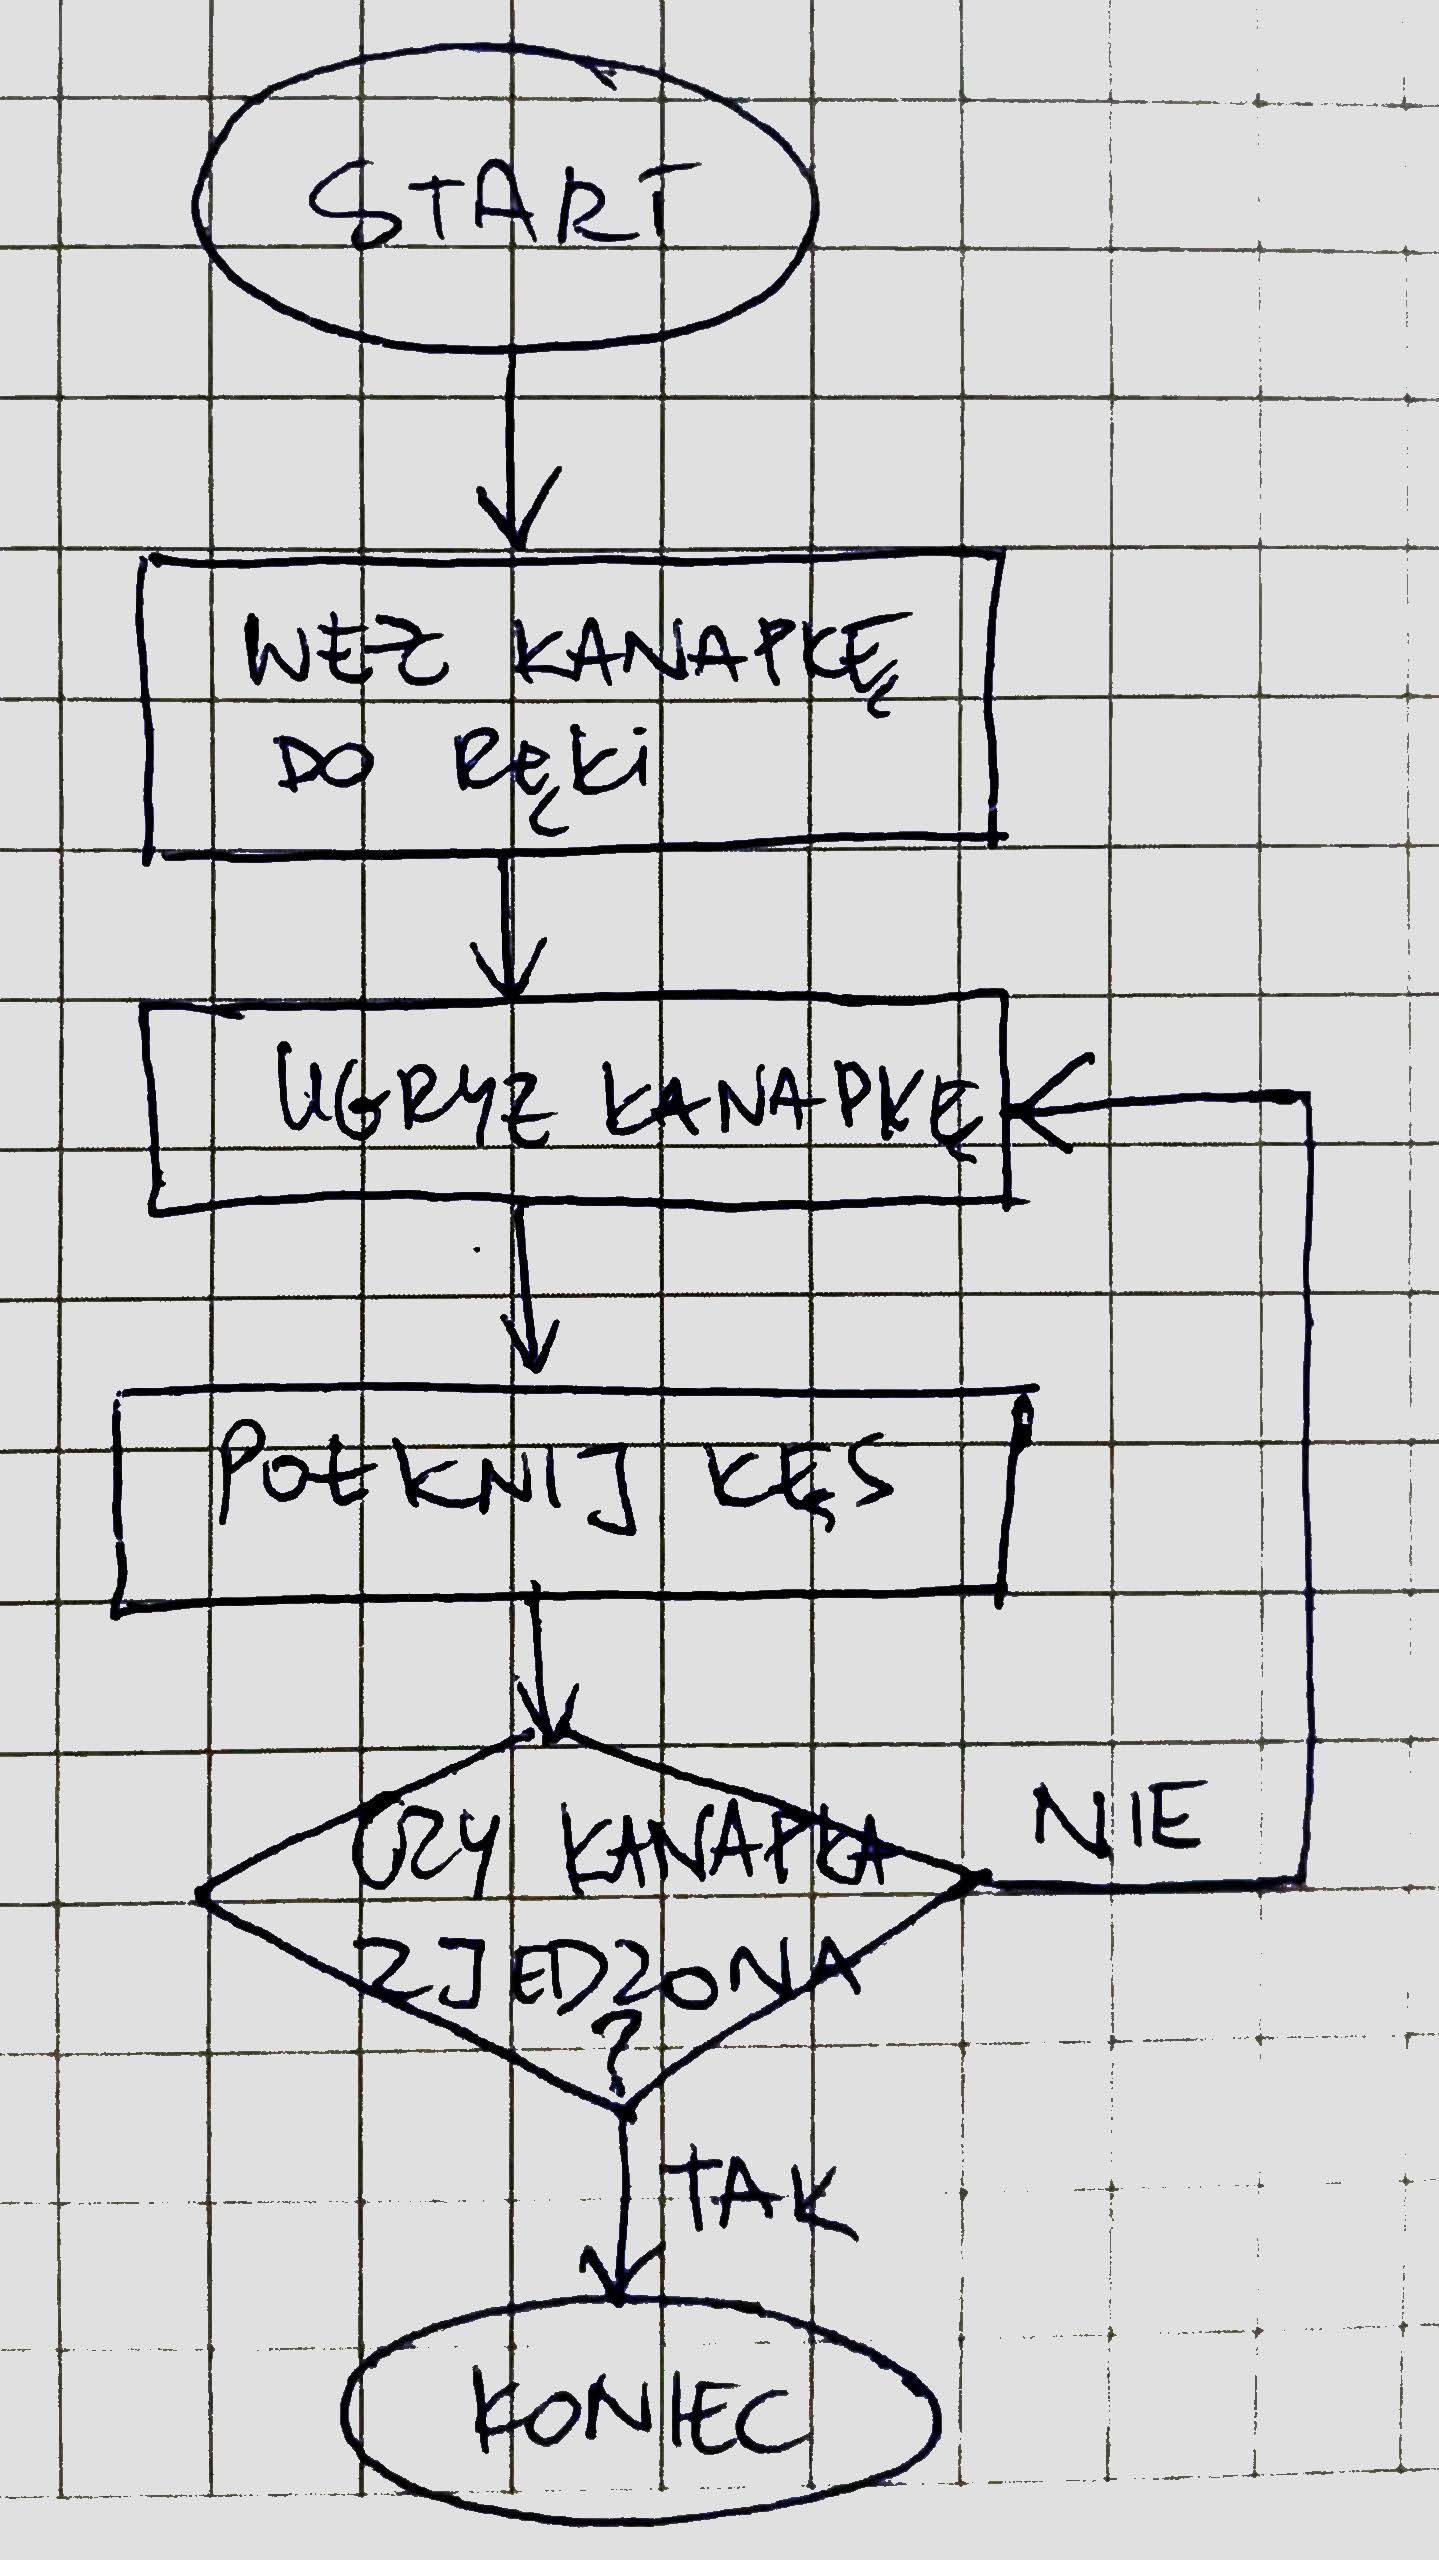 START
WEŹ KANAPKĘ
DO RĘKi
UGRYZ KANAPKĘ
POŁKNIJ KĘS
CZY KANAPKA
ZJEDZONA
?
NIE
TAK
KONIEC